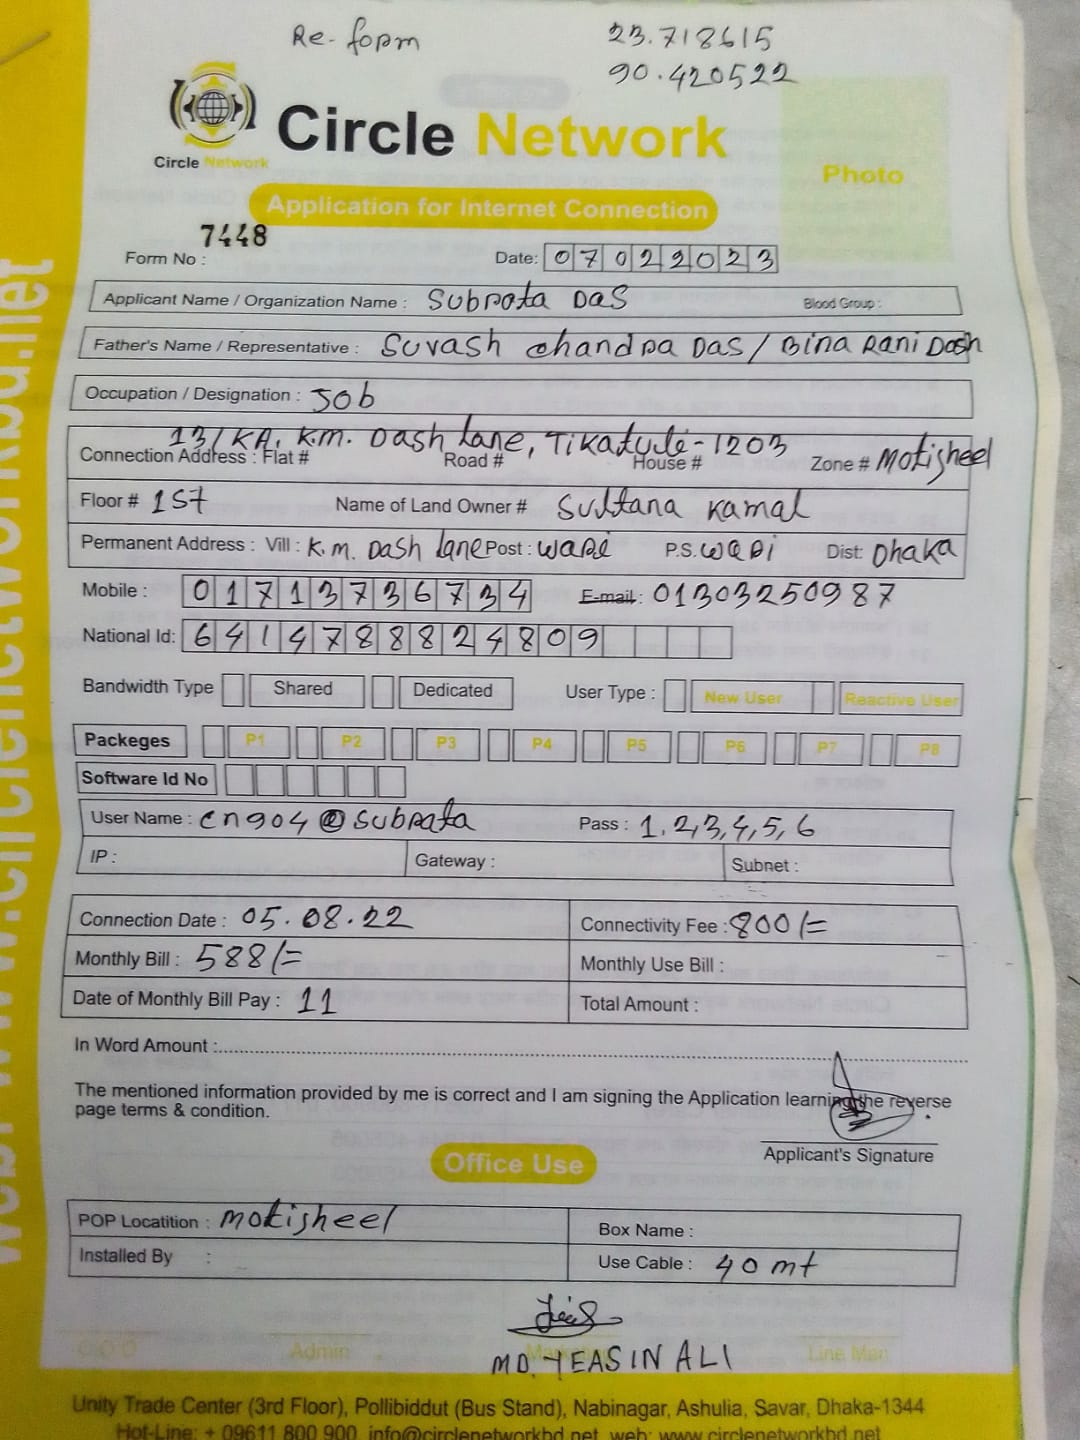 Re-form 23.718615
90.420522
Circle Network
Circle Network
Photo
Application for Internet Connection
7448
Form No : Date: 07022023
Applicant Name / Organization Name : Subrata Das Blood Group :
Father's Name / Representative : Suvash Chandra Das / Bina Rani Dash
Occupation / Designation : Job
13/KA, K.M. Dash Lane, Tikatule-1203
Connection Address : Flat # Road # House # Zone # Motijheel
Floor # 1st Name of Land Owner # Sultana Kamal
Permanent Address : Vill : K.M. Dash Lane Post : Wari P.S. Wari Dist: Dhaka
Mobile : 01713736734 E-mail : 01303250987
National Id: 6414788824809
Bandwidth Type Shared Dedicated User Type : New User Reactive User
Packeges P1 P2 P3 P4 P5 P6 P7 P8
Software Id No
User Name : cn904@subrata Pass : 1,2,3,4,5,6
IP : Gateway : Subnet :
Connection Date : 05.08.22 Connectivity Fee : 800/=
Monthly Bill : 588/= Monthly Use Bill :
Date of Monthly Bill Pay : 11 Total Amount :
In Word Amount :
The mentioned information provided by me is correct and I am signing the Application learning the reverse
page terms & condition.
Applicant's Signature
Office Use
POP Locatition : Motijheel Box Name :
Installed By : Use Cable : 40 mt
Admin Line Man
MD. YEASIN ALI
Unity Trade Center (3rd Floor), Pollibiddut (Bus Stand), Nabinagar, Ashulia, Savar, Dhaka-1344
Hot-Line: + 09611 800 900, info@circlenetworkbd.net, web: www.circlenetworkbd.net
web: www.circlenetworkbd.net